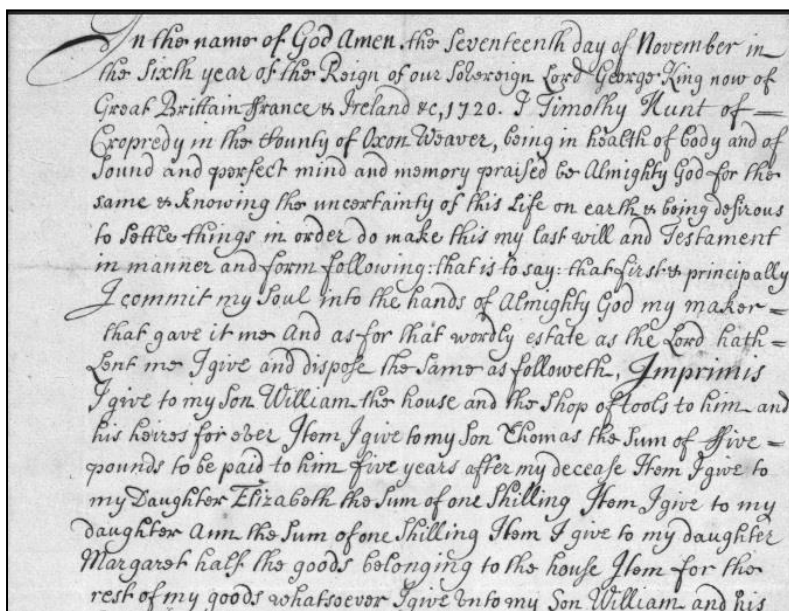 In the name of God Amen. the Seventeenth day of November in
the Sixth year of the Reign of our Sovereign Lord George King now of
Great Brittain ffrance & Ireland &c, 1720. I Timothy Hunt of
Cropredy in the County of Oxon Weaver, being in health of body and of
Sound and perfect mind and memory praised be Almighty God for the
same & knowing the uncertainty of this Life on earth & being desirous
to Settle things in order do make this my last will and Testament
in manner and form following: that is to say: that first & principally
I commit my Soul into the hands of Almighty God my maker
that gave it me And as for that wordly estate as the Lord hath
Lent me I give and dispose the same as followeth, Imprimis
I give to my Son William the house and the Shop of tools to him and
his heires for ever Item I give to my Son Thomas the Sum of ffive
pounds to be paid to him five years after my decease Item I give to
my Daughter Elizabeth the Sum of one Shilling Item I give to my
daughter Ann the Sum of one Shilling Item I give to my daughter
Margaret half the goods belonging to the house Item for the
rest of my goods whatsoever I give unto my Son William and his